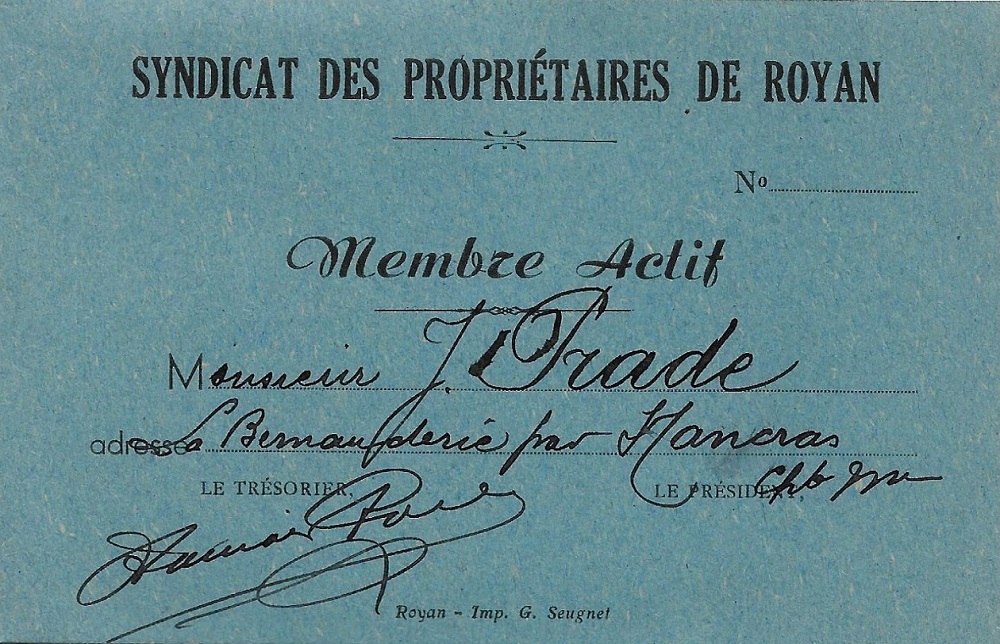 SYNDICAT DES PROPRIÉTAIRES DE ROYAN
No
Membre Actif
Monsieur J. Prade
adresse La Bernauderie par Hancras
LE TRÉSORIER,
LE PRÉSIDENT,
Royan - Imp. G. Seugnet